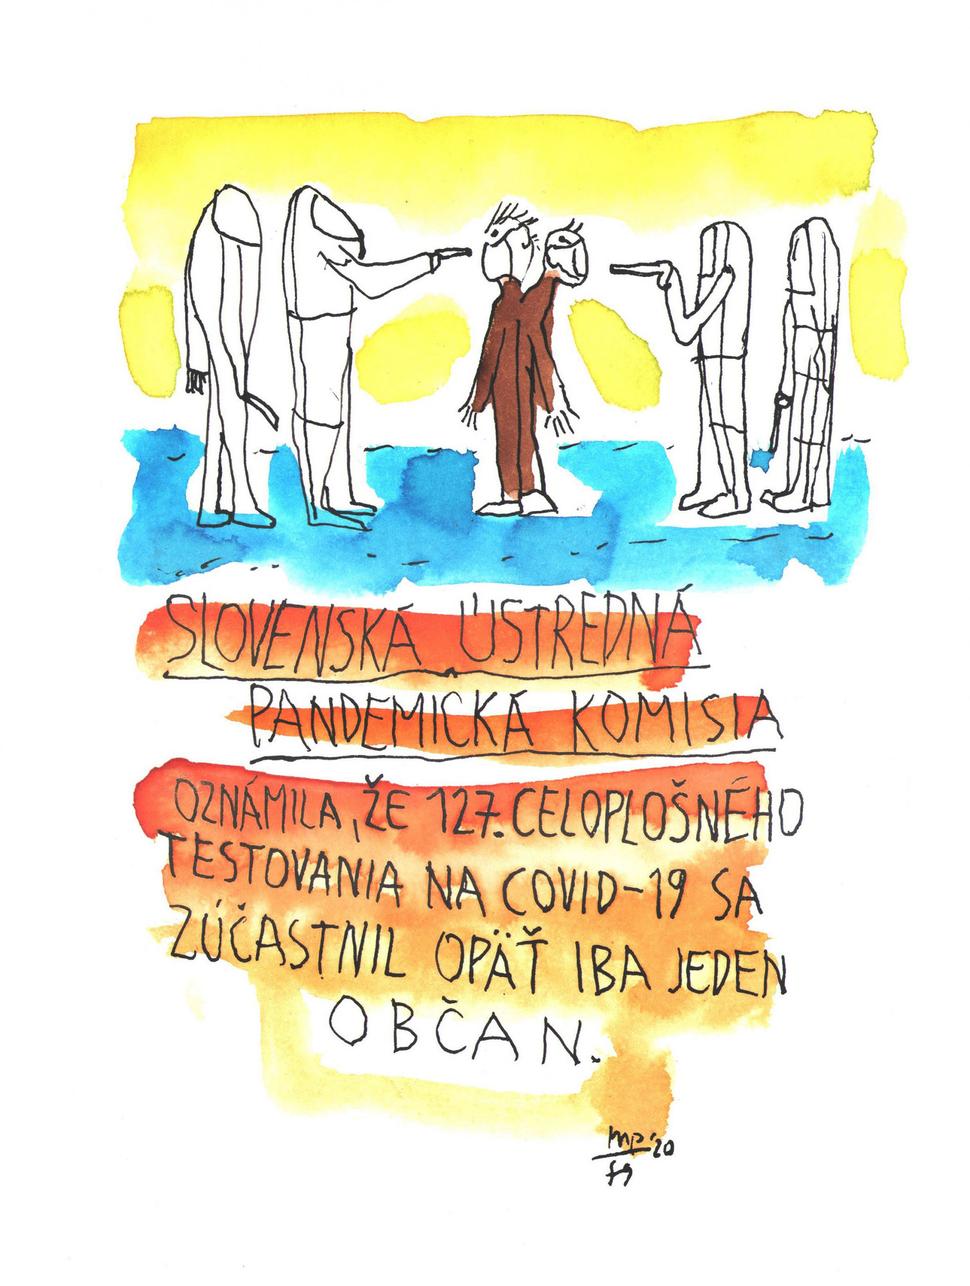 SLOVENSKÁ ÚSTREDNÁ
PANDEMICKÁ KOMISIA
OZNÁMILA, ŽE 127. CELOPLOŠNÉHO
TESTOVANIA NA COVID-19 SA
ZÚČASTNIL OPÄŤ IBA JEDEN
OBČAN.
MP '20